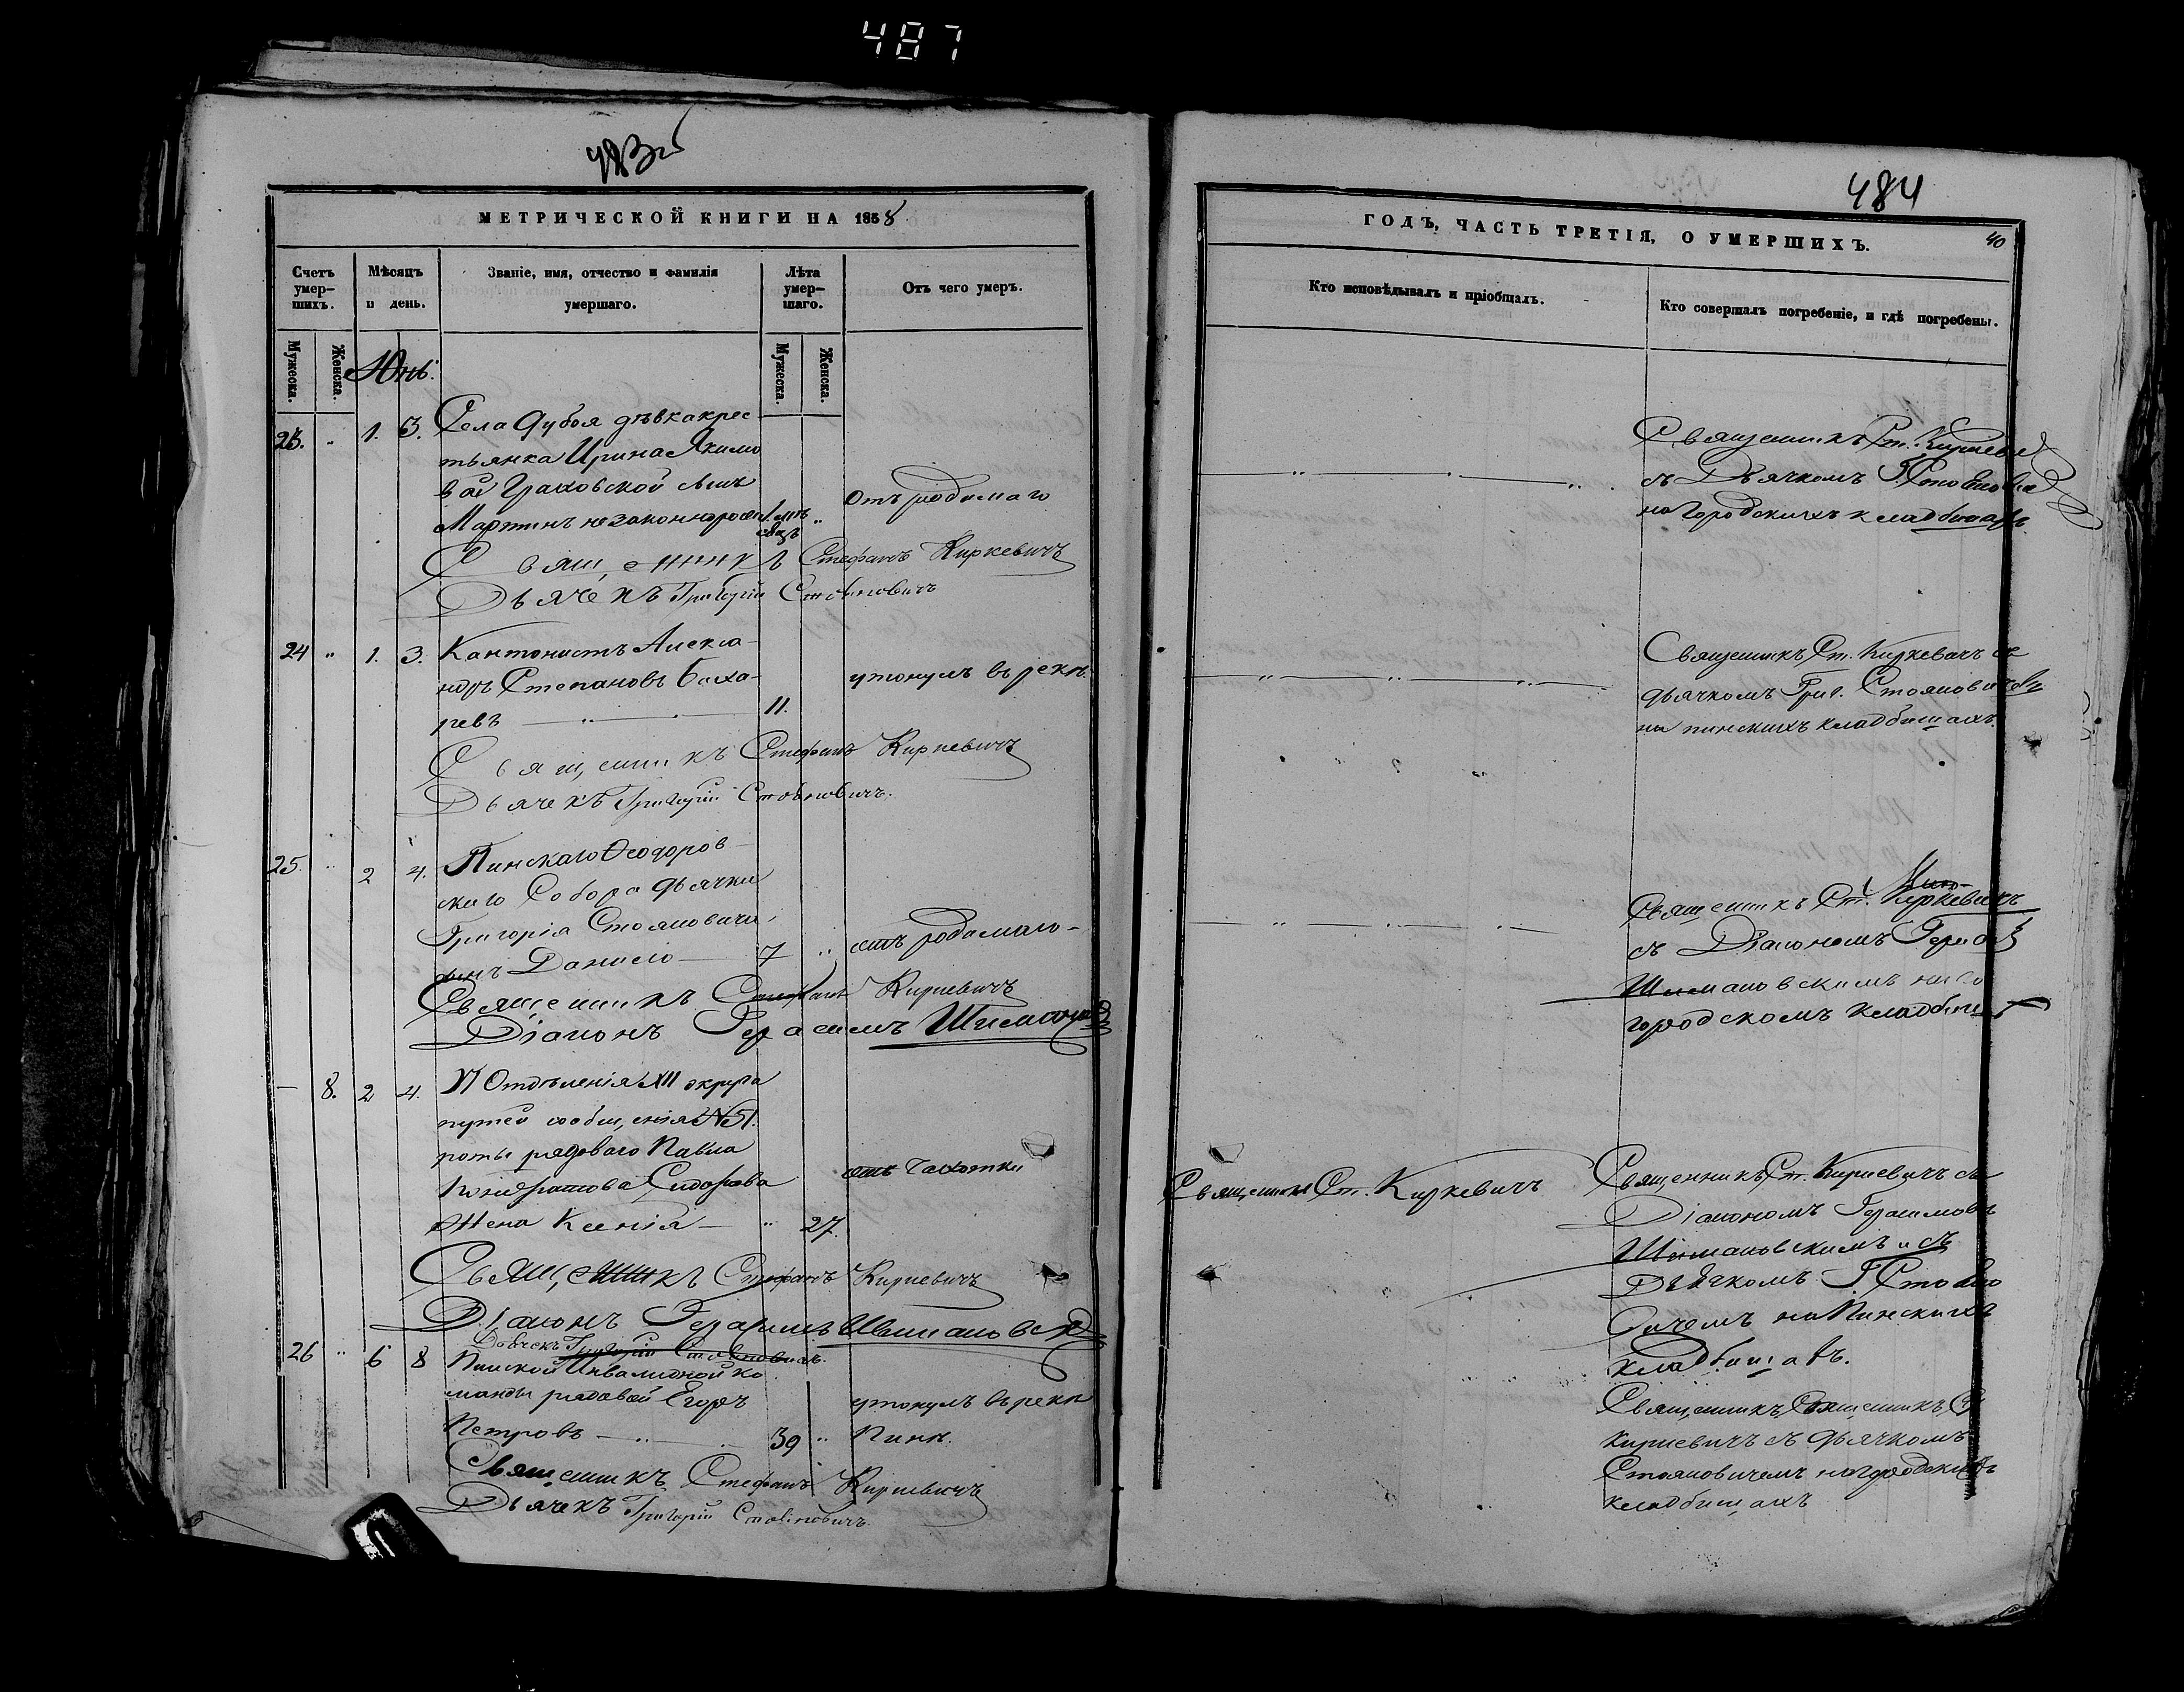 487
484
МЕТРИЧЕСКОЙ КНИГИ НА 1858
ГОДЪ, ЧАСТЬ ТРЕТІЯ, О УМЕРШИХЪ.
40
Счетъ умер-шихъ.
Мѣсяцъ и день.
Званіе, имя, отчество и фамилія умершаго.
Лѣта умер-шаго.
Отъ чего умеръ.
Кто исповѣдывалъ и пріобщалъ.
Кто совершалъ погребеніе, и гдѣ погребены.
Мужеска.
Женска.
Мужеска.
Женска.
Юнь.
23. " 1. 3. Села Дубоя дѣвка крес
тьянка Ирина Якимо
ва
Мартинъ незаконнорож
отъ родимаго
Священникъ Стефанъ Киркевичъ
Дьячекъ Григорій Стояновичъ
Священникъ Ст. Киркеви
съ Дьячкомъ Г. Стоянови
на городскихъ кладбищахъ
24 " 1. 3. Кантонистъ Алекса-
ндръ Степановъ Баха-
ревъ 11.
утонулъ въ рекѣ.
Священникъ Стефанъ Киркевичъ
Дьячекъ Григорій Стояновичъ.
Священникъ Ст. Киркевичъ съ
дьячкомъ Григ. Стояновичемъ
на пинскихъ кладбищахъ.
25. " 2 4. Пинскаго Ѳеодоров-
скаго Собора дьячка
Григорія Стояновича
сынъ Данило 7 "
отъ родимаго-
Священникъ Стефанъ Киркевичъ
Діаконъ Герасимъ
Священникъ Ст. Киркевичъ
съ Діакономъ
Шимановскимъ на
городскомъ кладбищ
— 8. 2 4. VI Отдѣленія XII округа
путей сообщенія № 51.
роты рядоваго Павла
Кондратова Сидорова
жена Ксенія — " 27.
отъ чахотки
Священникъ Стефанъ Киркевичъ
Діаконъ Герасимъ
Дьячекъ Григорій Стояновичъ.
Священникъ Ст. Киркевичъ
Священникъ Ст. Киркевичъ съ
Діакономъ Герасимомъ
Шимановскимъ и съ
Дьячкомъ Г. Стояно
вичемъ на Пинскихъ
кладбищахъ.
26 " 6 8 Пинской Инвалидной ко
манды рядовой Егоръ
Петровъ 39 "
утонулъ въ рекѣ
Пинѣ.
Священникъ Стефанъ Киркевичъ
Дьячекъ Григорій Стояновичъ.
Священникъ Священникъ С
Киркевичъ съ дьячкомъ
Стояновичемъ на городскихъ
кладбищахъ